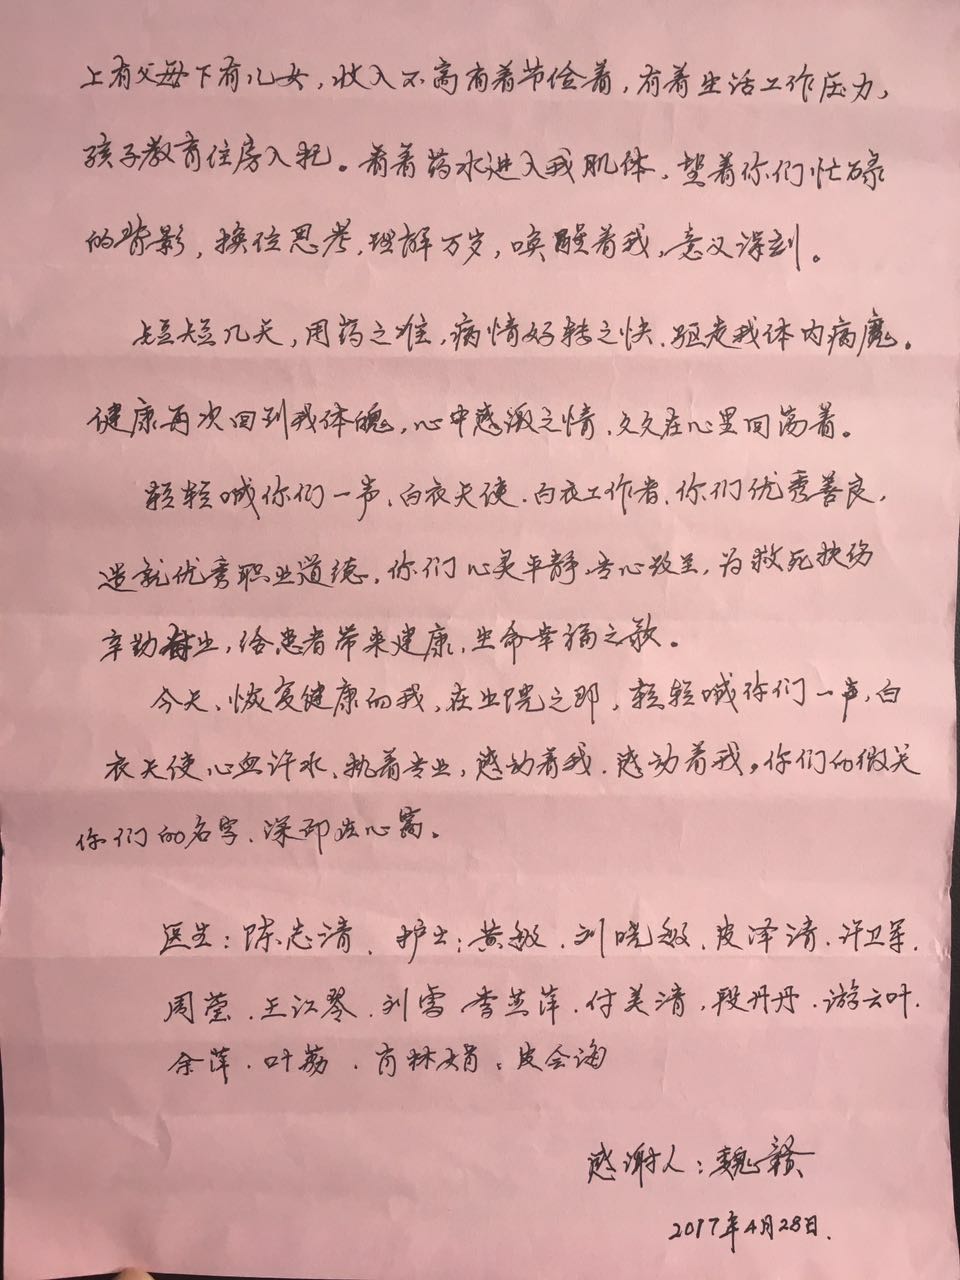 上有父母下有儿女，收入不高有着节俭着，有着生活工作压力，
孩子教育住房入托。看着药水进入我肌体，望着你们忙碌
的背影，换位思考，理解万岁，唤醒着我，意义深刻。
短短几天，用药之准，病情好转之快，驱走我体内病魔。
健康再次回到我体魄，心中感激之情，久久在心里回荡着。
轻轻喊你们一声，白衣天使，白衣工作者，你们优秀善良，
造就优秀职业道德，你们心灵平静，专心致至，为救死扶伤
辛勤，给患者带来健康，生命幸福之歌。
今天，恢复健康的我，在出院之即，轻轻喊你们一声，白
衣天使，心血汗水、执着专业，感动着我，感动着我，你们的微笑
你们的名字，深印在心窝。
医生：陈志清、护士：黄敏、刘晓敏、皮泽清、许卫军、
周莹、王江琴、刘雪、李兰萍、付美清、段丹丹、游云叶、
余萍、叶荔、肖林娟、皮会海
感谢人：魏赣
2017年4月28日.